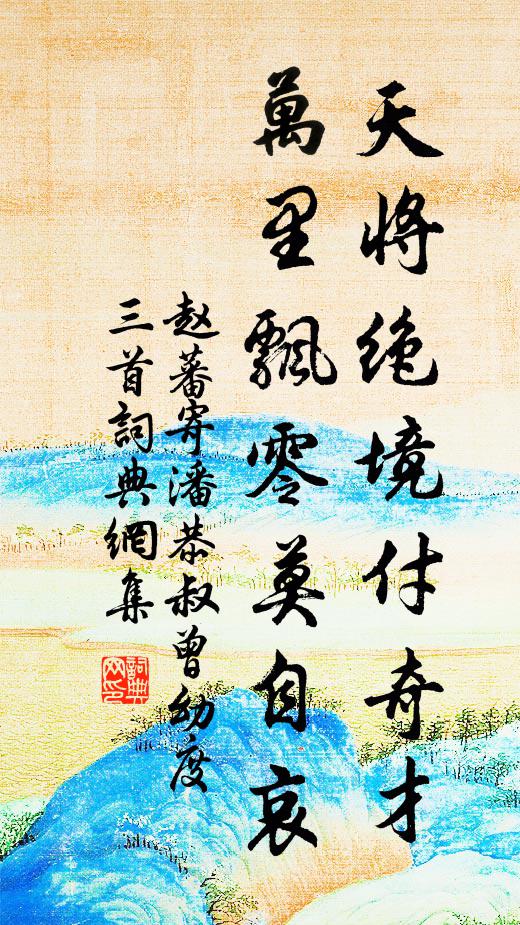 天將絕境付奇才
萬里飄零莫自哀
赵蕃寄潘恭叔曾幼度
三首詞典網集
詞典网印